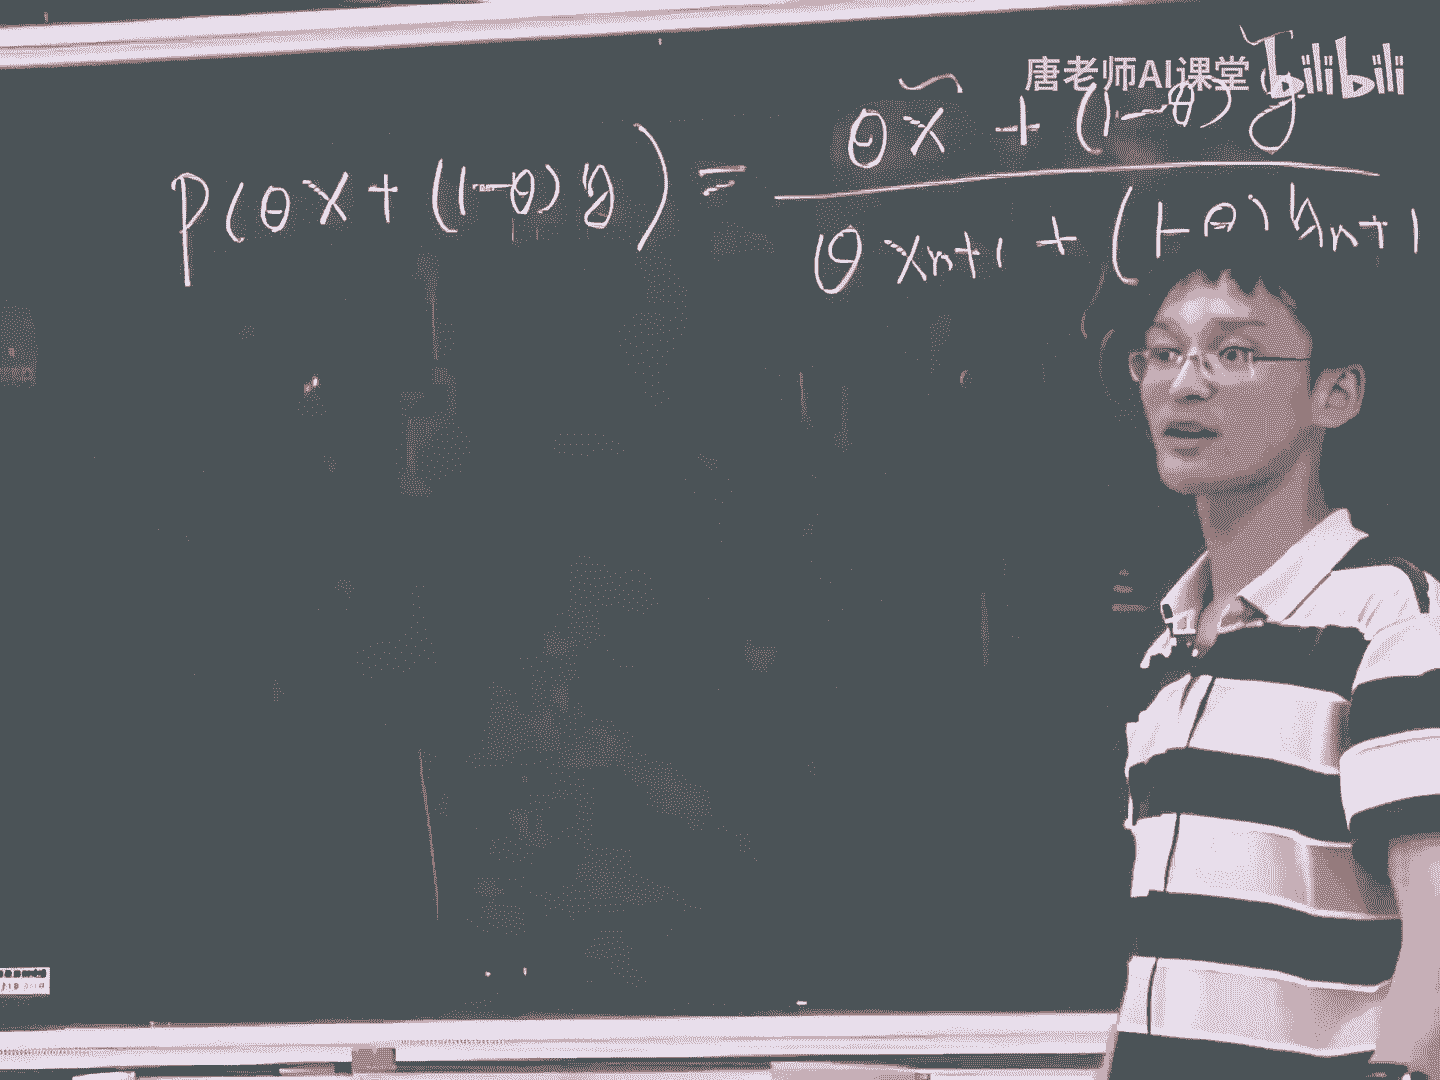 唐老师AI课堂 bilibili
P(θx+(1-θ)y) = (θx̃ + (1-θ)ỹ) / (θx_{n+1} + (1-θ)y_{n+1})